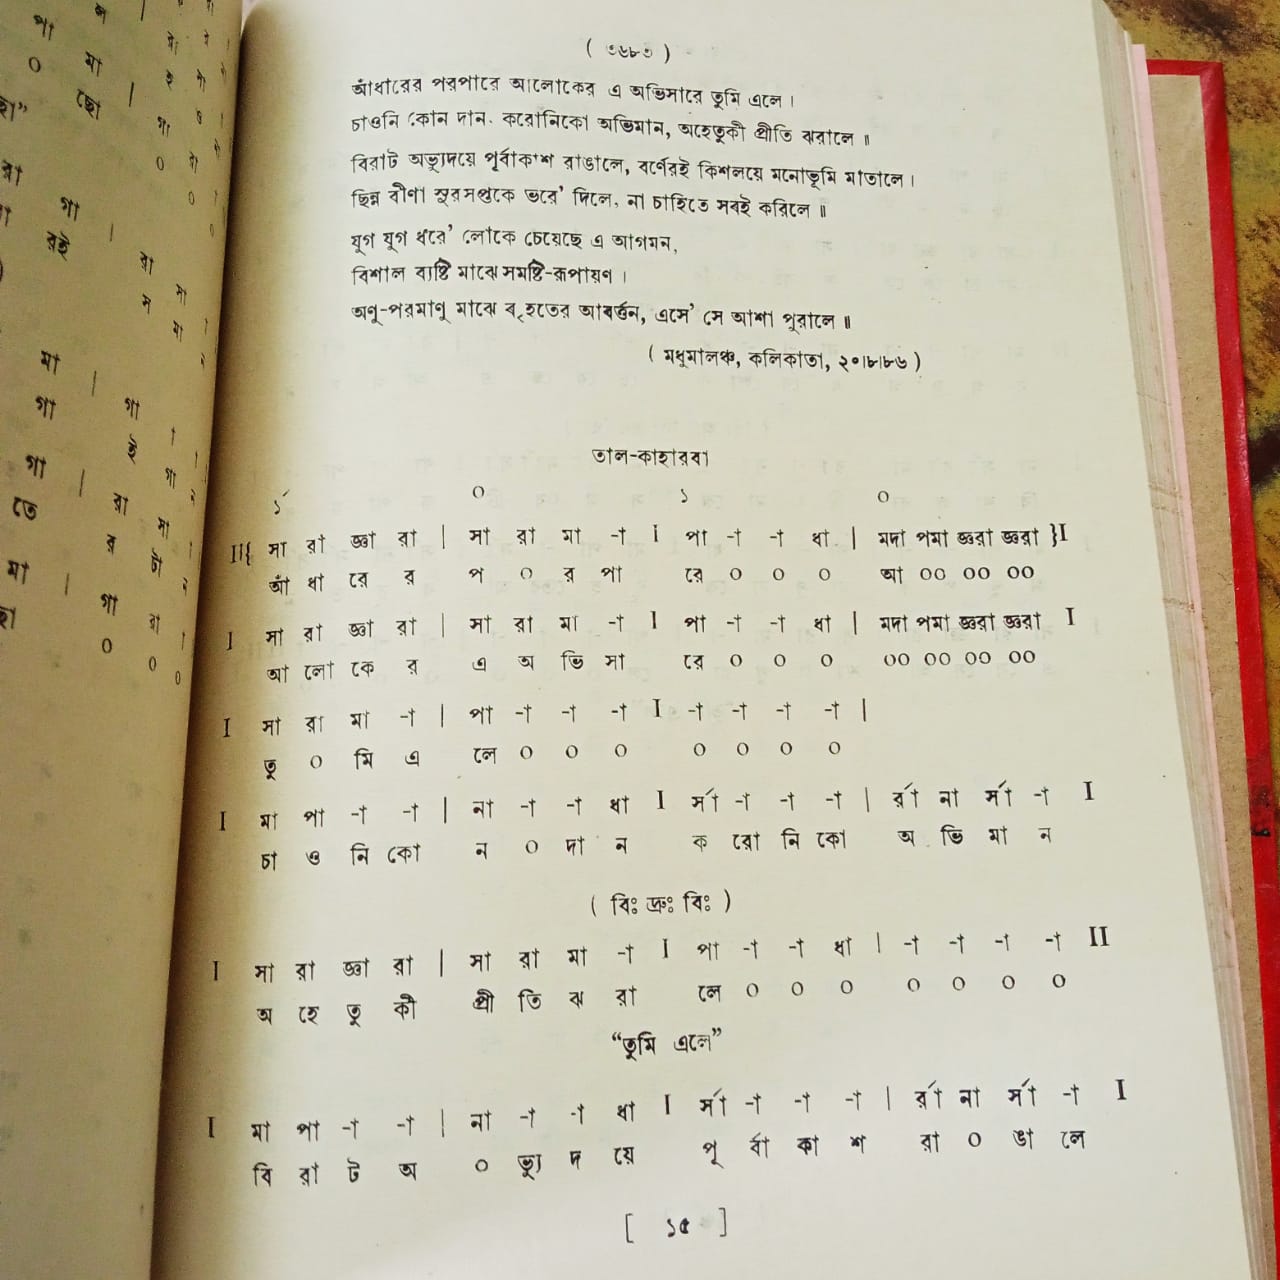 ( ৩৬৮৩ )
আঁধারের পরপারে আলোকের এ অভিসারে তুমি এলে ।
চাওনি কোন দান. করোনিকো অভিমান, অহেতুকী প্রীতি ঝরালে ॥
বিরাট অভ্যুদয়ে পূর্বাকাশ রাঙালে, বর্ণেরই কিশলয়ে মনোভূমি মাতালে ।
ছিন্ন বীণা সুরসপ্তকে ভরে’ দিলে, না চাহিতে সবই করিলে ॥
যুগ যুগ ধরে’ লোকে চেয়েছে এ আগমন,
বিশাল ব্যষ্টি মাঝে সমষ্টি-রূপায়ণ ।
অণু-পরমাণু মাঝে বৃহতের আবর্ত্তন, এসে’ সে আশা পূরালে ॥
( মধুমালঞ্চ, কলিকাতা, ২০৷৮৷৮৬ )
তাল-কাহারবা
১´ ০ ১ ০
II{ সা রা জ্ঞা রা | সা রা মা -া I পা -া -া ধা | মদা পমা জ্ঞরা জ্ঞরা }I
আঁ ধা রে র প ০ র পা রে ০ ০ ০ আ ০০ ০০ ০০
I সা রা জ্ঞা রা | সা রা মা -া I পা -া -া ধা | মদা পমা জ্ঞরা জ্ঞরা I
আ লো কে র এ অ ভি সা রে ০ ০ ০ ০০ ০০ ০০ ০০
I সা রা মা -া | পা -া -া -া I -া -া -া -া |
তু ০ মি এ লে ০ ০ ০ ০ ০ ০ ০
I মা পা -া -া | না -া -া ধা I র্সা -া -া -া | র্রা না র্সা -া I
চা ও নি কো ন ০ দা ন ক রো নি কো অ ভি মা ন
( বিঃ দ্রুঃ বিঃ )
I সা রা জ্ঞা রা | সা রা মা -া I পা -া -া ধা | -া -া -া -া II
অ হে তু কী প্রী তি ঝ রা লে ০ ০ ০ ০ ০ ০ ০
“তুমি এলে”
I মা পা -া -া | না -া -া ধা I র্সা -া -া -া | র্রা না র্সা -া I
বি রা ট অ ০ ভ্যু দ য়ে পূ র্বা কা শ রা ০ ঙা লে
[ ১৫ ]